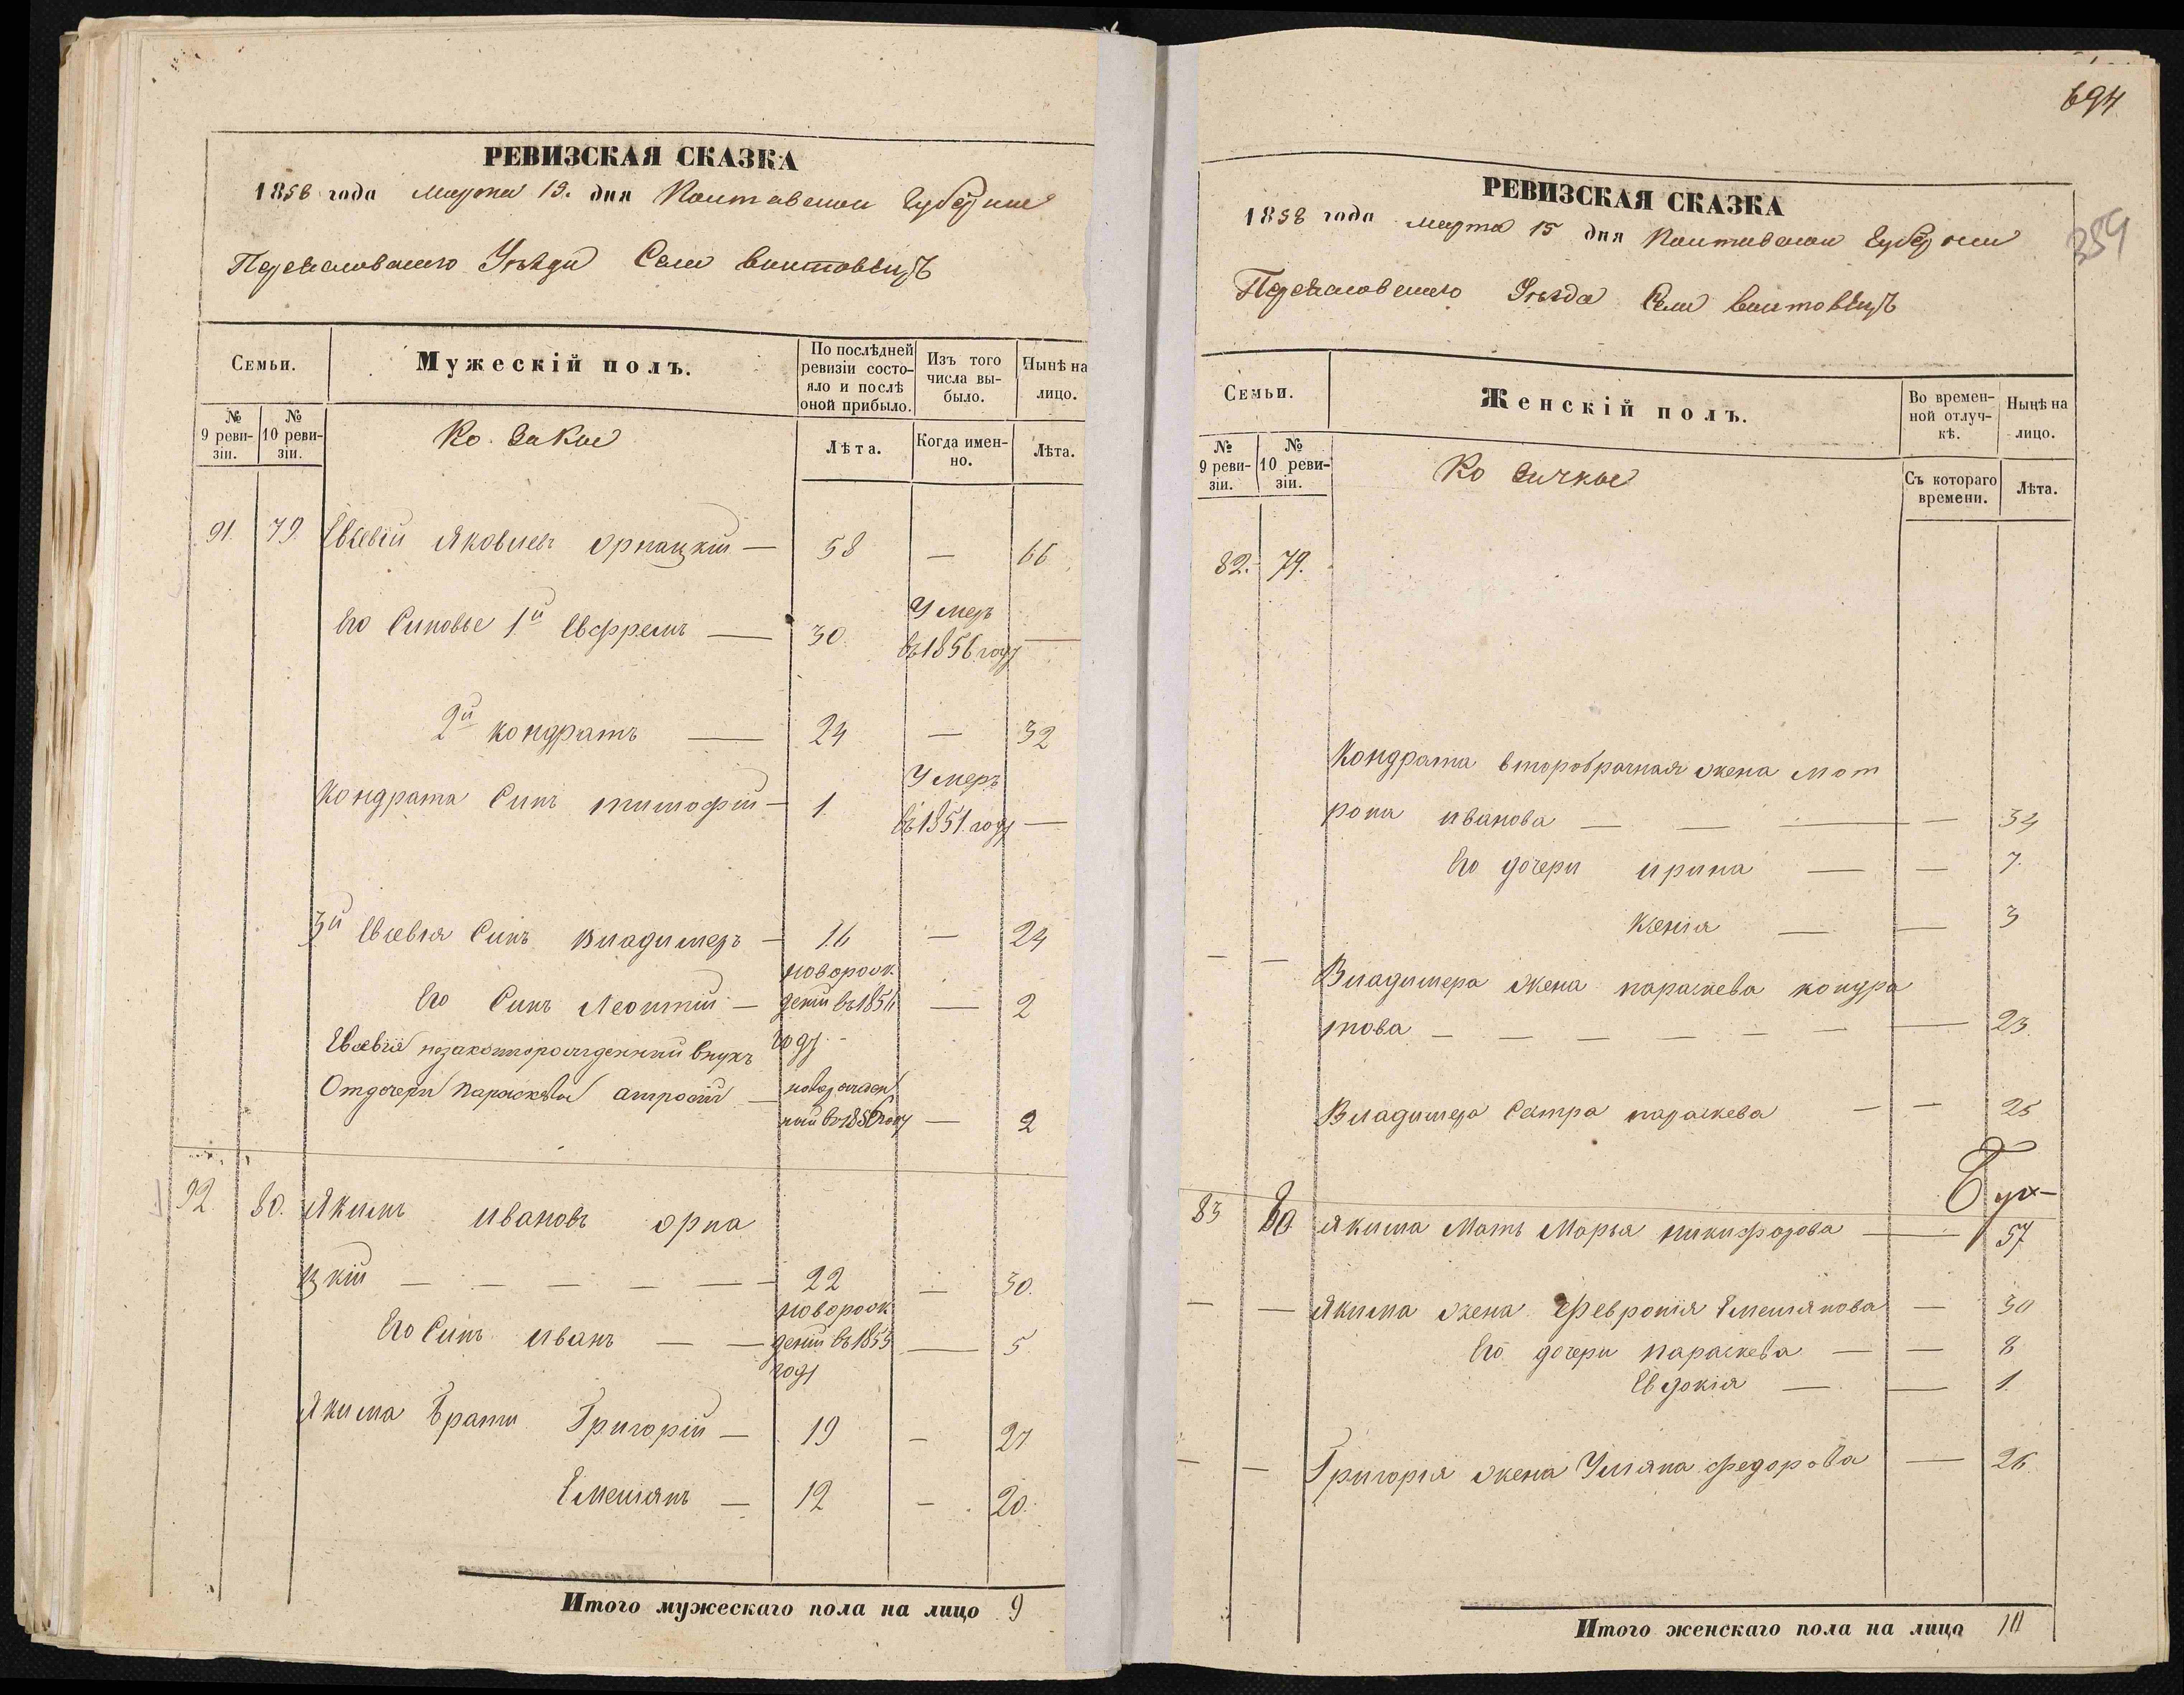 РЕВИЗСКАЯ СКАЗКА
1858 года Марта 15. дня Полтавской Губерніи
Переяславского Уезда Села Войтовецъ
Семьи.
Мужескій полъ.
По послѣдней ревизіи состояло и послѣ оной прибыло.
Изъ того числа выбыло.
Нынѣ на лицо.
№ 9 ревизіи.
№ 10 ревизіи.
Козаки
Лѣта.
Когда именно.
Лѣта.
91. 79. Евсевій Яковлевъ Орпацкій — 58 — 66
Его Синовье 1й Евфремъ — 30. Умеръ въ 1856 году —
2й Кондратъ — 24 — 32
Кондрата Синъ Тимофій — 1. Умеръ въ 1851 году —
3й Евсевія Синъ Владимеръ — 16 — 24
Его Синъ Леонтій — новорожденій въ 1856 году — 2
Евсевія незаконнорожденний внукъ
От дочери Параскевы Амросій — новорожденный въ 1856 году — 2
92. 80. Якимъ Ивановъ Орпа
цкій — — — — — 22 — 30.
Его Синъ Иванъ — — новорожденій въ 1853 году — 5
Якима Брати Григорій — 19 — 27
Емелянъ — 12 — 20.
Итого мужескаго пола на лицо 9
694
359
РЕВИЗСКАЯ СКАЗКА
1858 года Марта 15 дня Полтавской Губерніи
Переяславского Уезда Села Войтовецъ
Семьи.
Женскій полъ.
Во временной отлучкѣ.
Нынѣ на лицо.
№ 9 ревизіи.
№ 10 ревизіи.
Козачкы
Съ котораго времени.
Лѣта.
82. 79.
Кондрата второбрачная жена Мот
рона Иванова — — — — 34
Его дочери Ирина — — 7.
Ксенія — — 3
— — Владимера жена Параскева Кондра
това — — — — — — 23.
Владимера Сестра Параскева — — 25
83 80 Якима Мать Марья Никифорова — 57
— — Якима жена Февронія Емелянова — 30
Его дочери Параскева — — 8
Евдокія — — 1.
— — Григорія жена Уляна Федорова — 26
Итого женскаго пола на лицо 10